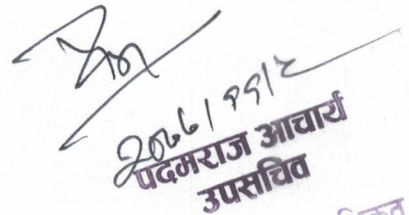 २०७७।११।२
पदमराज आचार्य
उपसचिव